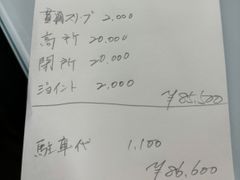 貫通スリーブ 2.000
高所 20.000
閉所 20.000
ジョイント 2.000
¥85,500
駐車代 1.100
¥86,600